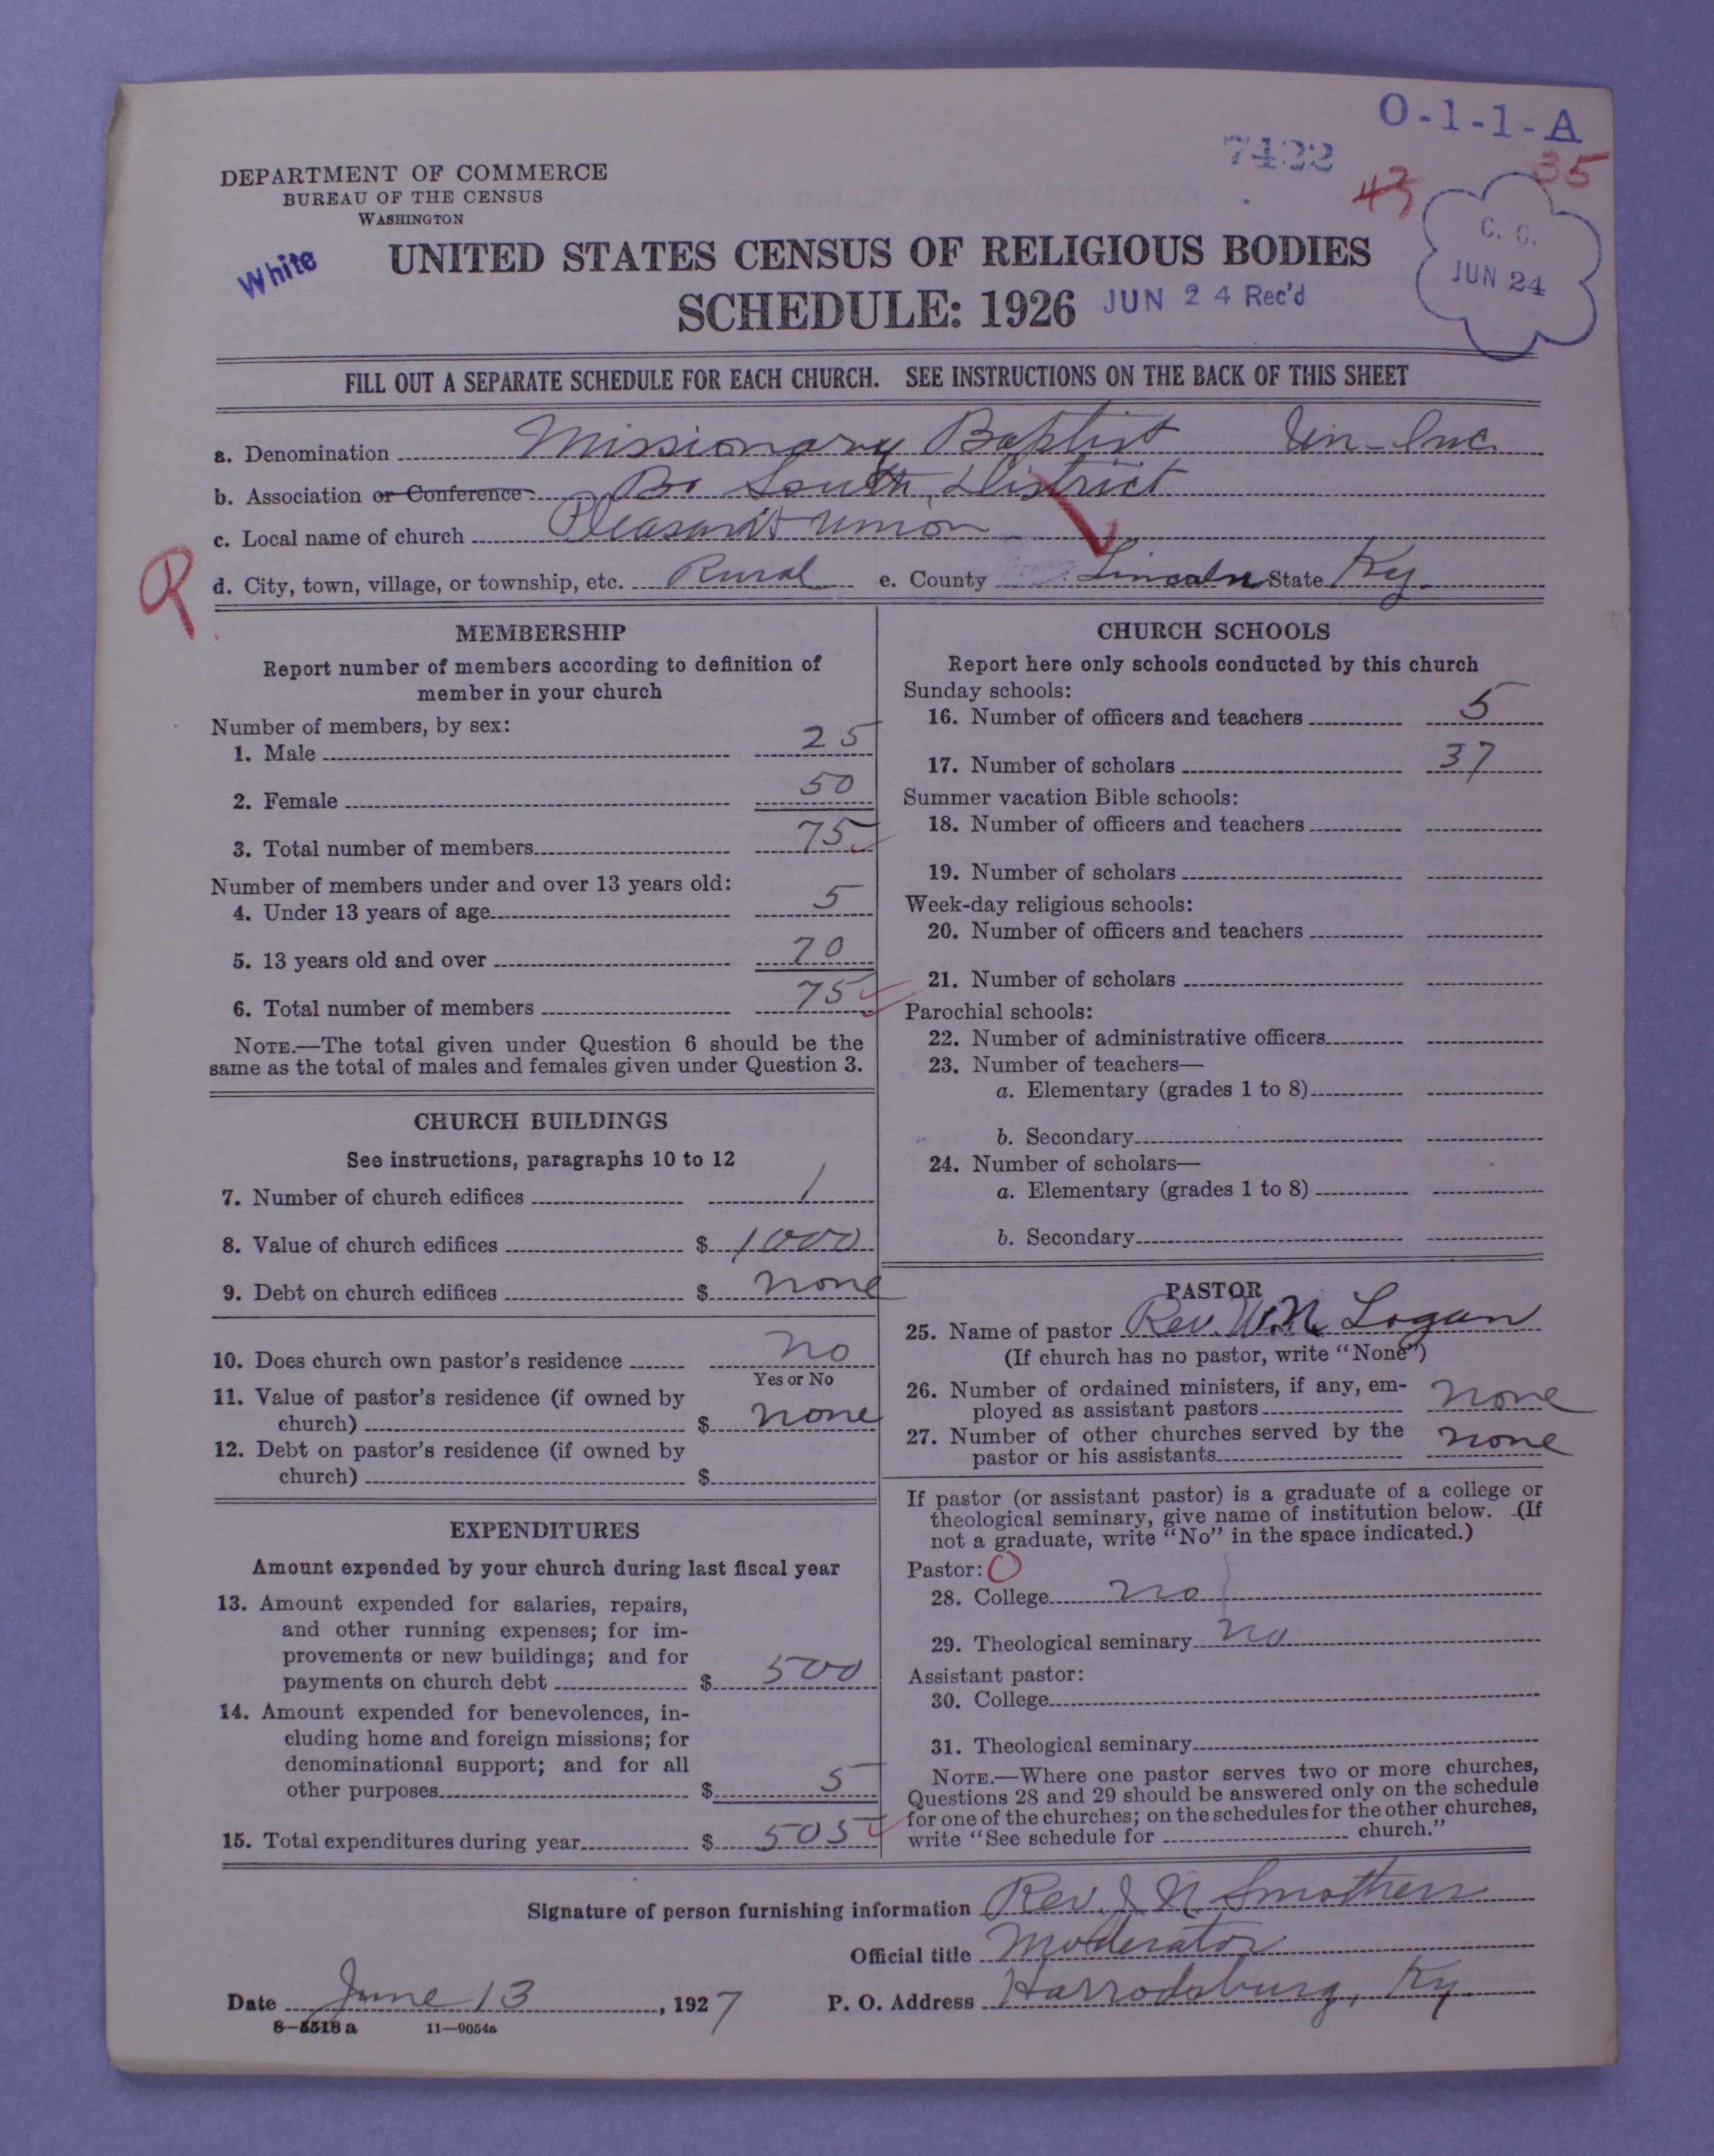 O-1-1-A
7422
35
43
DEPARTMENT OF COMMERCE
BUREAU OF THE CENSUS
WASHINGTON
White
UNITED STATES CENSUS OF RELIGIOUS BODIES
SCHEDULE: 1926
JUN 24 Rec'd
C. C.
JUN 24
FILL OUT A SEPARATE SCHEDULE FOR EACH CHURCH. SEE INSTRUCTIONS ON THE BACK OF THIS SHEET
a. Denomination Missionary Baptist Un-Inc.
b. Association or Conference South District
c. Local name of church Pleasant Union
d. City, town, village, or township, etc. Rural e. County Lincoln State Ky.
MEMBERSHIP
Report number of members according to definition of
member in your church
Number of members, by sex:
1. Male 25
2. Female 50
3. Total number of members 75
Number of members under and over 13 years old:
4. Under 13 years of age 5
5. 13 years old and over 70
6. Total number of members 75
NOTE.—The total given under Question 6 should be the
same as the total of males and females given under Question 3.
CHURCH BUILDINGS
See instructions, paragraphs 10 to 12
7. Number of church edifices 1
8. Value of church edifices $ 1000
9. Debt on church edifices $ none
10. Does church own pastor's residence no
Yes or No
11. Value of pastor's residence (if owned by
church) $ none
12. Debt on pastor's residence (if owned by
church) $
EXPENDITURES
Amount expended by your church during last fiscal year
13. Amount expended for salaries, repairs,
and other running expenses; for im-
provements or new buildings; and for
payments on church debt $ 500
14. Amount expended for benevolences, in-
cluding home and foreign missions; for
denominational support; and for all
other purposes $ 5
15. Total expenditures during year $ 505
CHURCH SCHOOLS
Report here only schools conducted by this church
Sunday schools:
16. Number of officers and teachers 5
17. Number of scholars 37
Summer vacation Bible schools:
18. Number of officers and teachers
19. Number of scholars
Week-day religious schools:
20. Number of officers and teachers
21. Number of scholars
Parochial schools:
22. Number of administrative officers
23. Number of teachers—
a. Elementary (grades 1 to 8)
b. Secondary
24. Number of scholars—
a. Elementary (grades 1 to 8)
b. Secondary
PASTOR
25. Name of pastor Rev. W. N. Logan
(If church has no pastor, write "None")
26. Number of ordained ministers, if any, em-
ployed as assistant pastors none
27. Number of other churches served by the
pastor or his assistants none
If pastor (or assistant pastor) is a graduate of a college or
theological seminary, give name of institution below. (If
not a graduate, write "No" in the space indicated.)
Pastor: O
28. College no
29. Theological seminary no
Assistant pastor:
30. College
31. Theological seminary
NOTE.—Where one pastor serves two or more churches,
Questions 28 and 29 should be answered only on the schedule
for one of the churches; on the schedules for the other churches,
write "See schedule for church."
Signature of person furnishing information Rev. J. N. Smothers
Official title Moderator
Date June 13, 1927 P. O. Address Harrodsburg, Ky.
8—5518 a 11—9054a